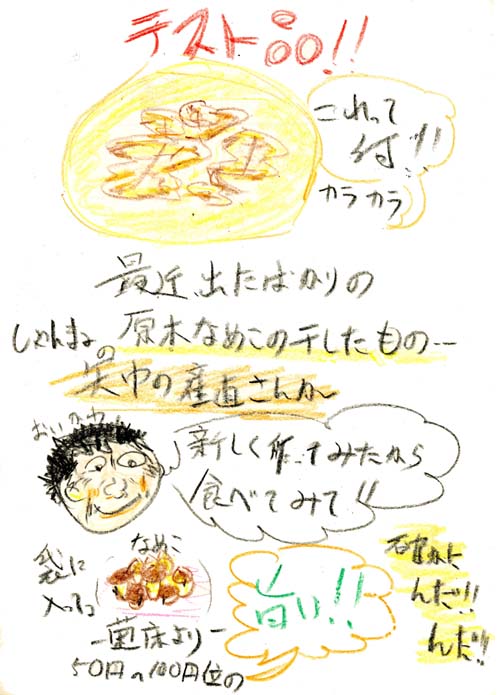 テスト品!!
これって
何!!
カラカラ
最近出たばかりの
原木なめこの干したもの--
の
矢巾の産直さんから
おいかわ
新しく作ってみたから
食べてみて!!
なめこ
袋に
入って
旨い!!
確かに
んだ!!
んだ!!
-菌床より-
50円〜100円位の